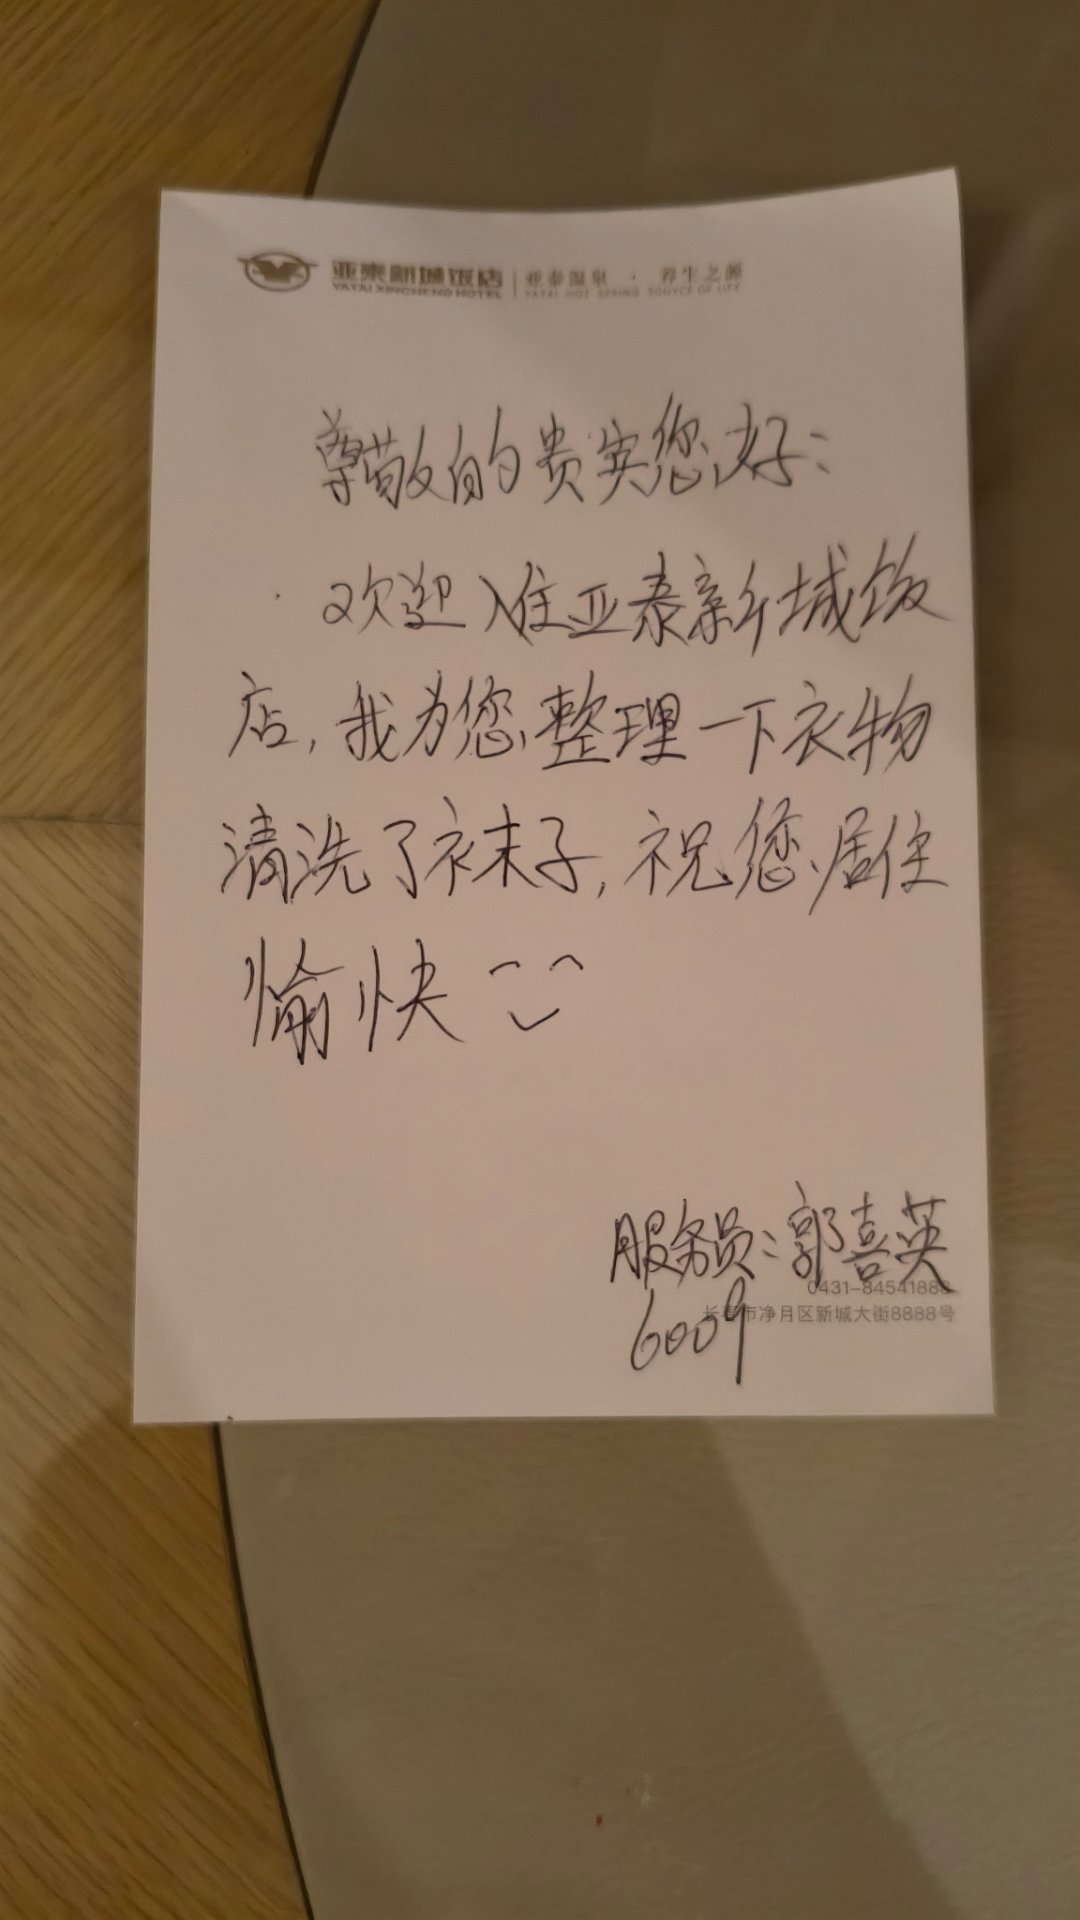 亚泰新城饭店 | 亚泰温泉 · 养生之源
YATAI XINCHENG HOTEL | YATAI HOT SPRING SOURCE OF LIFE
尊敬的贵宾您好:
欢迎入住亚泰新城饭
店,我为您整理一下衣物
清洗了袜子,祝您居住
愉快
服务员:郭喜英
0431-8454188
6009
长春市净月区新城大街8888号